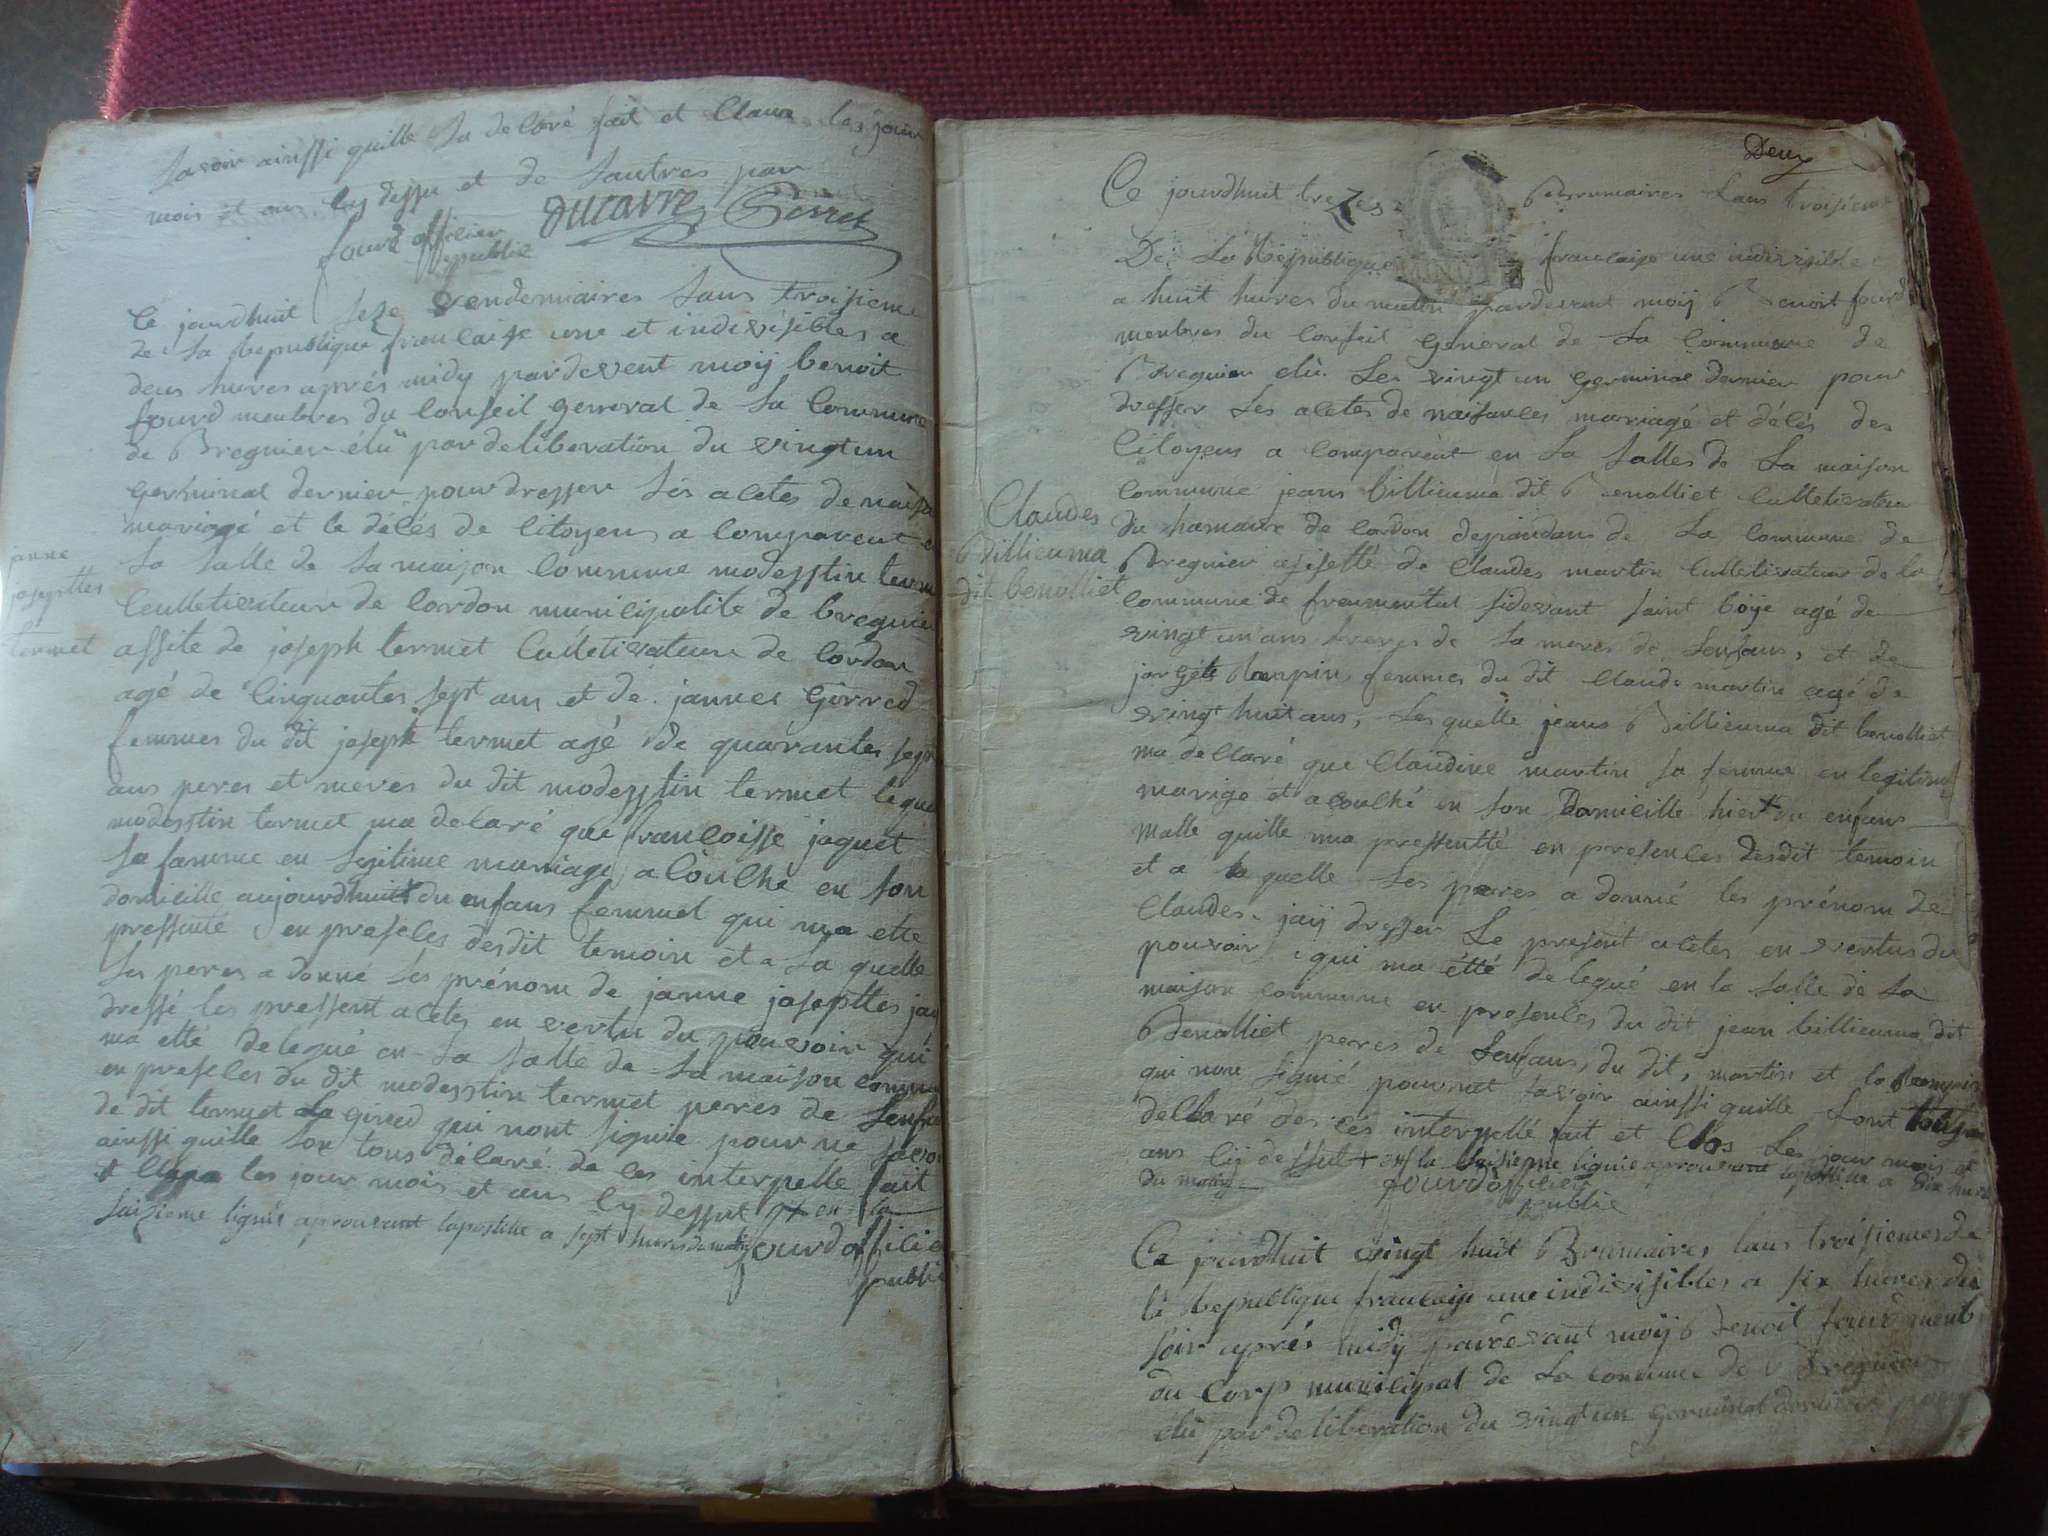 savoir ainssi quille la declaré fait et Claux les jour
mois et ans cy dessu et de sautres par
ducarre Perret
fourd officier
publie
Ce jourdhuit seze vendemiaires lans troisieme
de la Republique francaise une et indivisibles a
deus hures aprés midy pardevent moij benoit
fourd menbres du Conseil general de la Commune
de Bregnier élù par deliberation du vingt un
germinal dernier pour dresser les actes de naisa
mariagé et le décés de citoyens a comparent en
la salle de la maison commune modesstin termet
Culletivateur de cordon municipalite de bregnier
assite de joseph termet Culletivateur de Cordon
agé de cinquantes sept ans et de jannes Girred
femmes du dit joseph termet agé de quarantes sept
ans peres et meres du dit modesstin termet leque
modesstin termet ma delaré que francoisse jaquet
sa famme en legitime mariage a coulhé en son
domicille aujourdhuit du enfans femmel qui ma etté
pressenté en preseles desdit temoin et a la quelle
les peres a donné les prénom de janne josepttes jai
dressé les pressent actes en vertu du pouvoir qui
ma etté delegué en la salle de la maison commu
en preseles du dit modesstin termet peres de lenfa
de dit termet la girred qui nont signie pour ne savoi
ainssi quille son tous délaré de ces interpelle fait
et Claus les jour mois et ans cy dessut + en la
saizieme lignie aprouvant lapostille a sept hures du matin
fourd officie
publi
janne
joseptes
termet
Deux
Ce jourdhuit trezes Brumaires lans troisieme
De La Republique francaise une indivisible
a huit hures du matin pardevent moij Benoit fourd
menbres du Conseil general de la Commune de
Bregnier elù les vingt un germinal dernier pour
dresser les actes de naisances mariagé et décés des
Citoyens a comparent en la salles de la maison
commune jeans billiemma dit Benolliet Culletivateur
du hamaux de cordon depandans de la commune de
Bregnier assistté de Claudes martin Culletivateur de la
commune de fraumental sidevant saint boije agé de
vingt un ans freres de la meres de lenfans, et de
jorgéte femmes du dit Claude martin agé de
vingt huit ans, les quelle jeans Billiemma dit benolliet
ma dellaré que Claudine martin sa femme en legitime
marige et acoulhé en son Domicille hier du enfans
malle quille ma pressentté en presenles desdit temoin
et a la quelle les peres a donné les prénom de
Claudes jaij dresser le present actes en vertus du
pouvoir qui ma étté delegué en la salle de la
maison commune en presenles du dit jean billiemma dit
Benolliet peres de lenfans, du dit, martin et la
qui nons signié pour net savoir ainssi quille sont tous
dellaré de ces interpellé fait et Clos les jour mois et
ans cij dessut + en la lignie aprouvant lapostille a dix huit
du matin
fourd officier
publie
Claudes
Billiemma
dit benolliet
Ce jourdhuit vingt huit Brumaires lans troisiemes de
la Republique francaise une indivisibles a six hures du
soir aprés midy pardevant moij Benoit fourd menb
du Corp municipal de la commune de Bregnier
élù par deliberation du vingt un germinal dernier